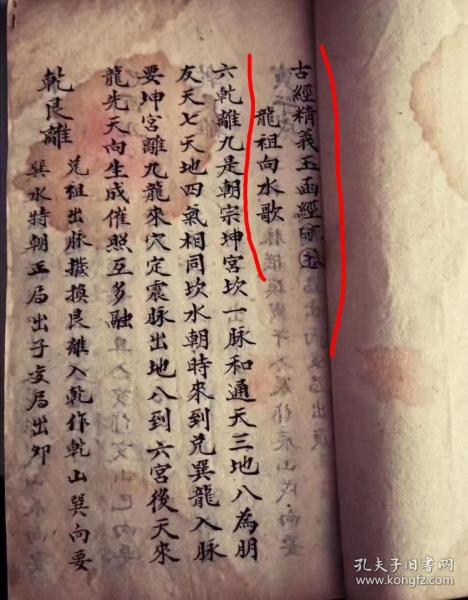 古經精義玉函經
龍祖向水歌
六乾離九是朝宗坤宮坎一脉和通天三地八為朋
友天七天地四氣相同坎水朝時來到兑巽龍入脉
要坤宮離九龍來穴定震脉出地八到六宮後天來
龍先天向生成催照互多融
乾艮離 兑祖出脉撥換艮離入乾作乾山巽向要
巽水特朝正局出子变局出卯
孔夫子旧書网
www.kongfz.com